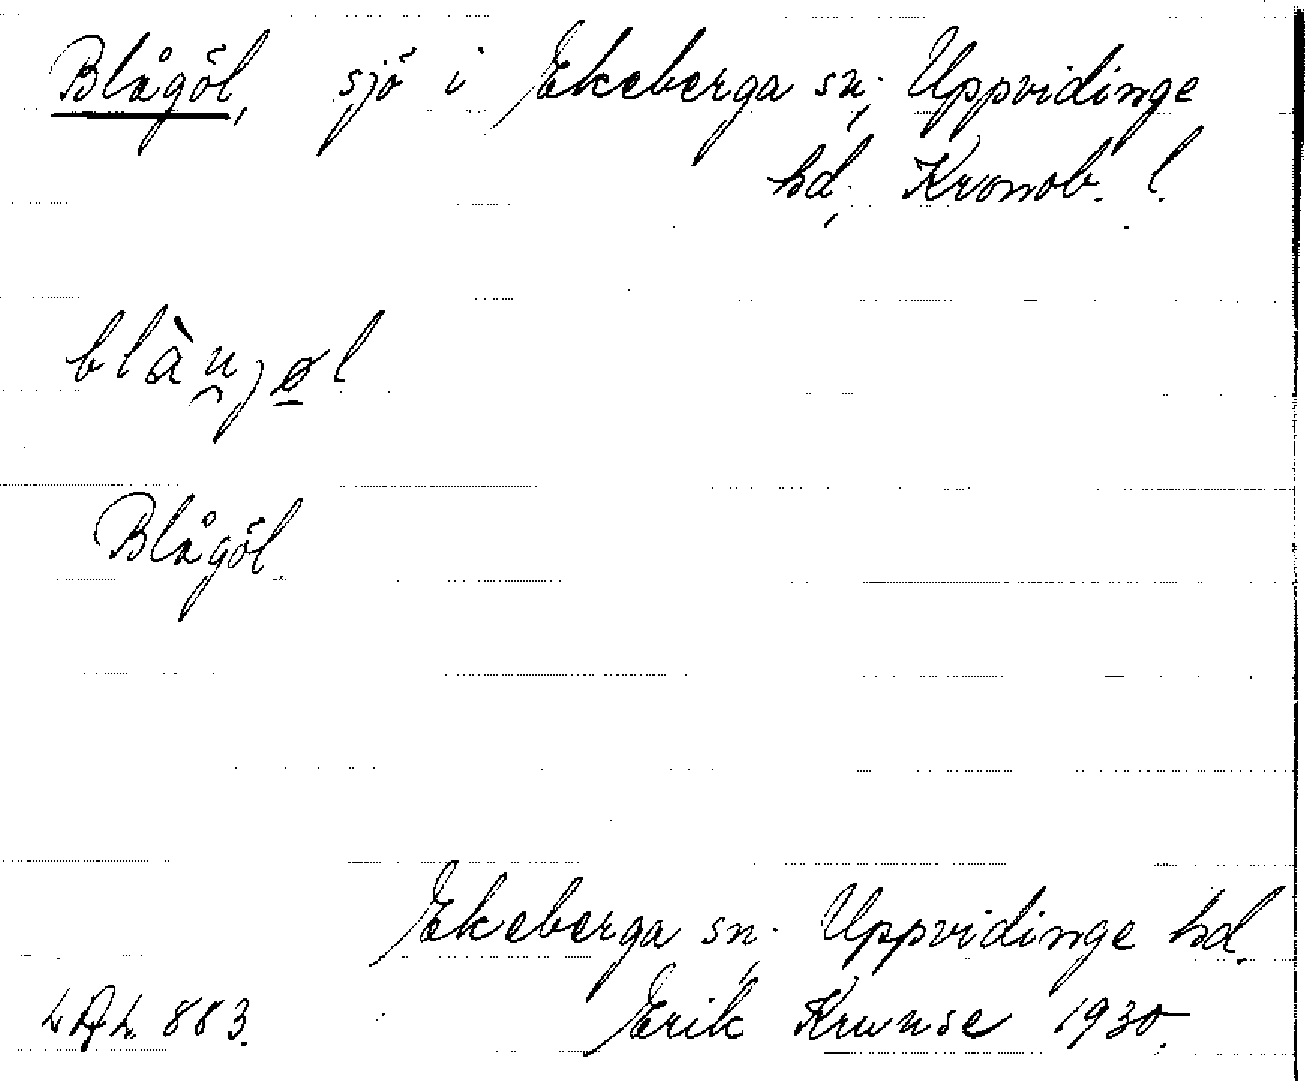 Blågöl, sjö i Ekeberga sn; Uppvidinge
hd; Kronob. l.
blàu̯jø̲l
Blågöl.
Ekeberga sn; Uppvidinge hd.
883. Erik Krunse 1930.